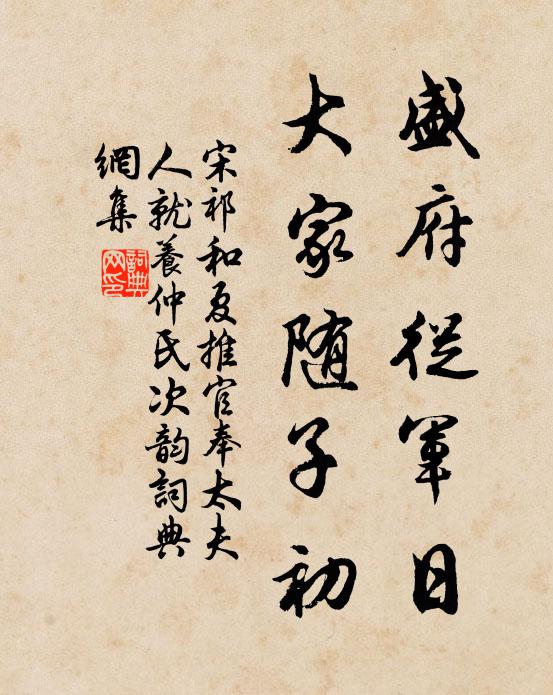 盛府従軍日
大家随子初
宋祁和夏推官奉太夫
人就養仲氏次韵詞典
網集
詞典
网印